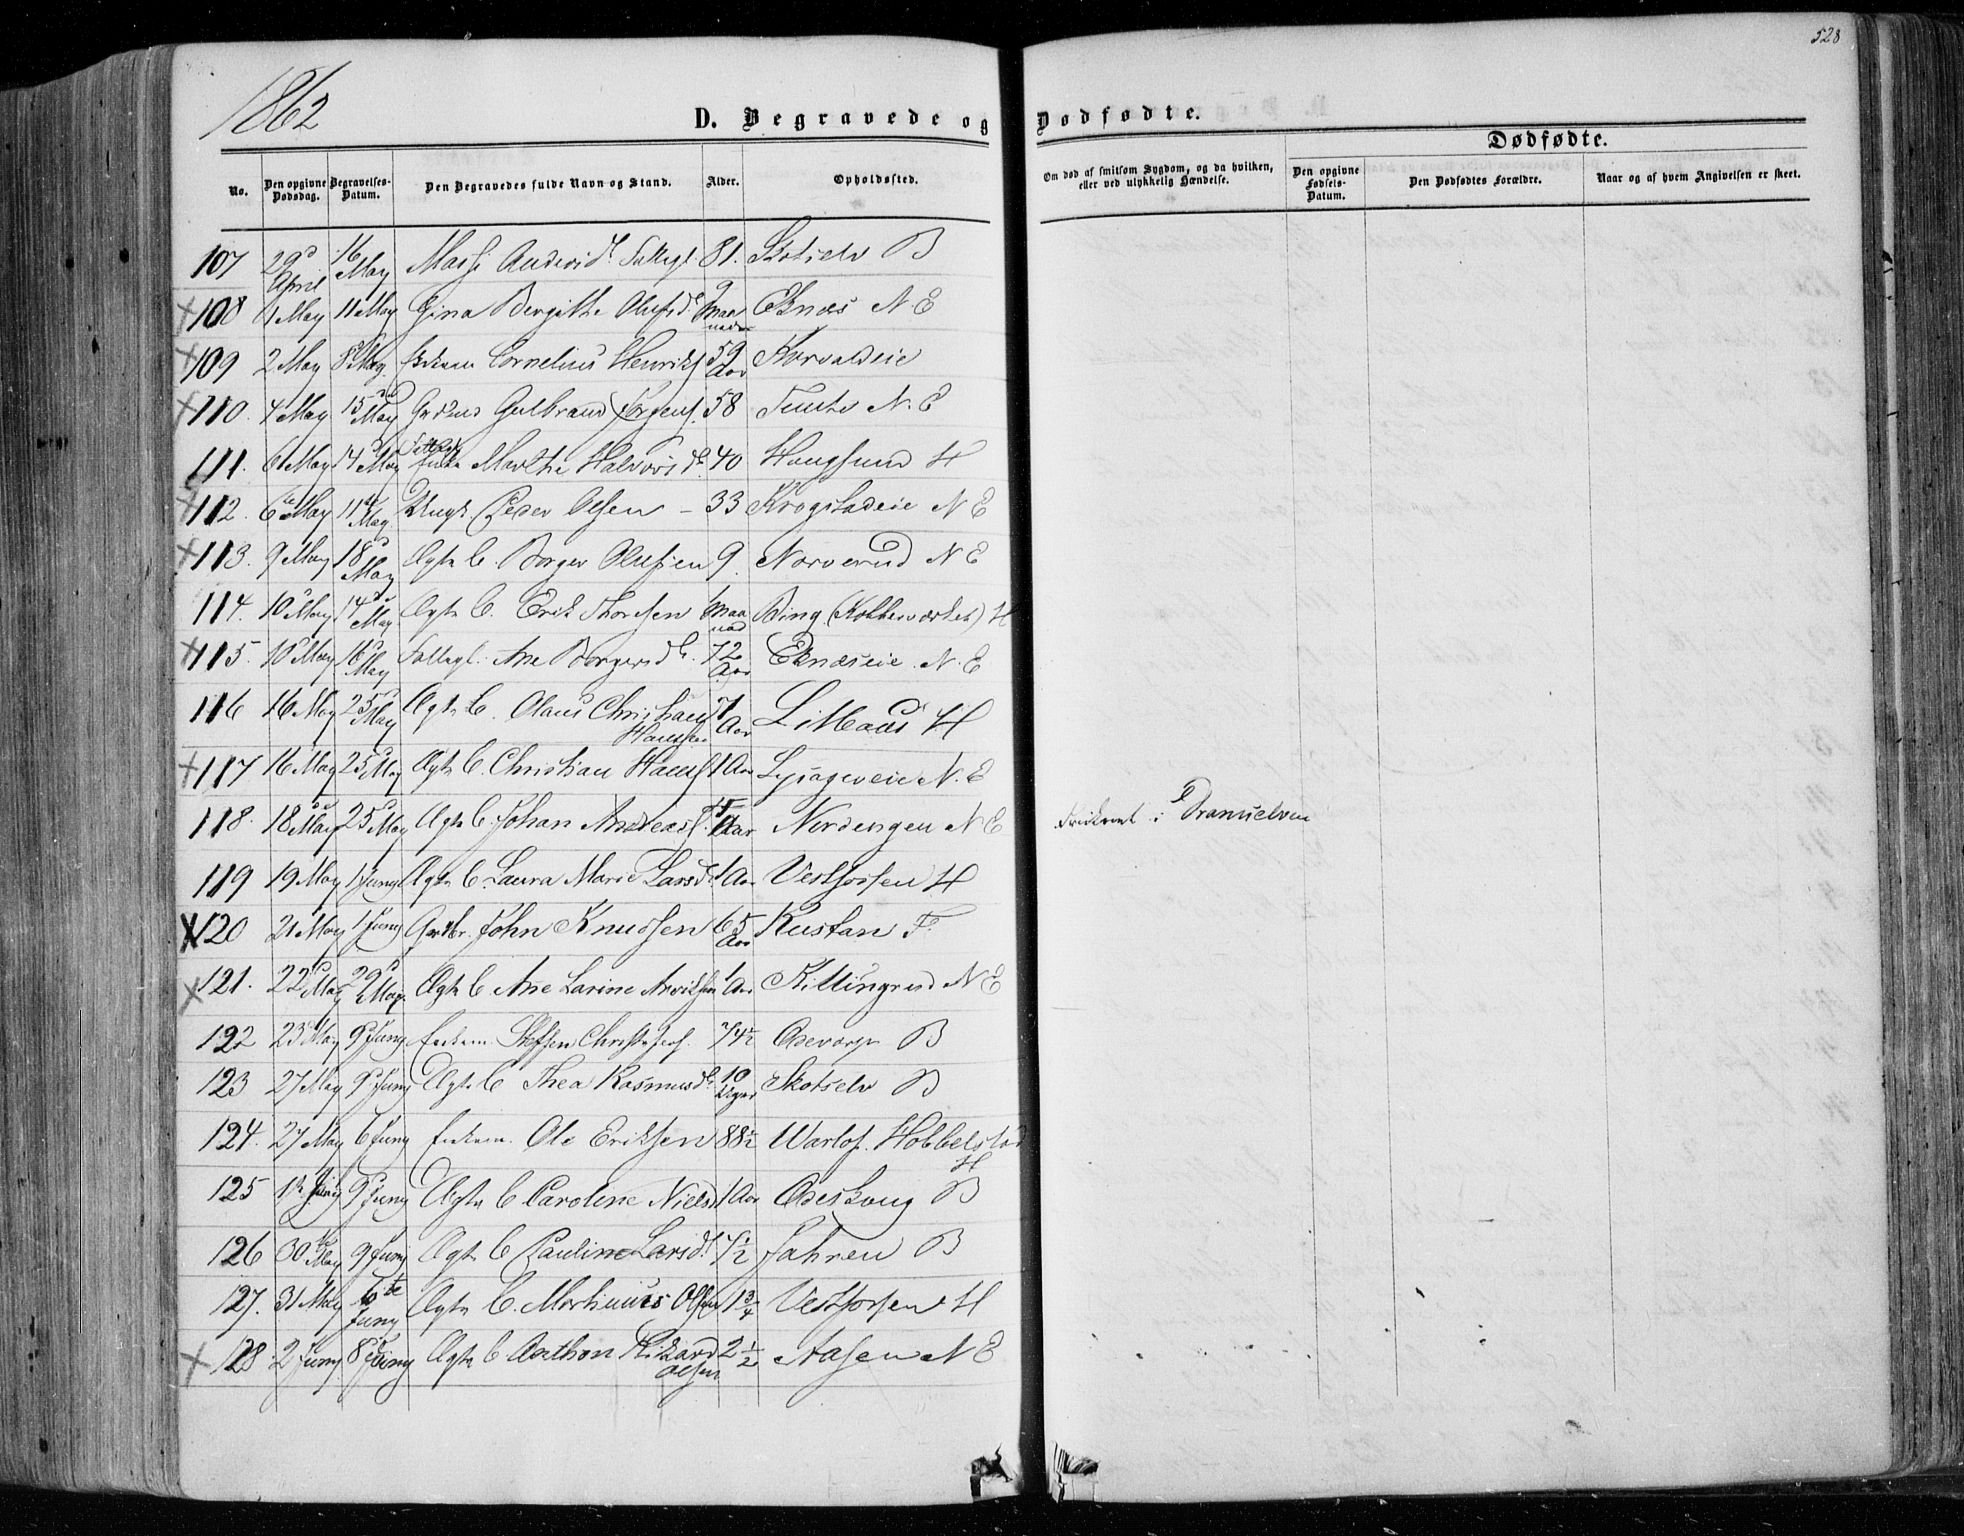 528
1862
D. Begravede og Dødfødte.
Dødfødte.
No.
Den opgivne Dødsdag.
Begravelses-Datum.
Den Begravedes fulde Navn og Stand.
Alder.
Opholdssted.
Om død af smitsom Sygdom, og da hvilken, eller ved ulykkelig Hændelse.
Den opgivne Fødsels-Datum.
Den Dødfødtes Forældre.
Naar og af hvem Angivelsen er skeet.
107 29 April 16 May 81. Skotselv B
108 1 May 11 May Gina Bergithe Olufsd. 9 Maaneder Eknæs N E
109 2 May 8 May Cornelius Henriks 59 Aar Korvaldeie
110. 4 May 15 May Gulbrand Jørgens. 58 N. E
111. 6 May 14 May Marthe Halvorsd. 40 Hougsund H
112. 6te May 11te May Ungk Peder Olsen - 33 Krogstadeie N E
113. 9 May 18 May Ægte B. Borger Olufsen 9. Norverud N E
114. 10 May 14 May Ægte B. Erik Thorsen 1 Maaned Bing (Kobberværket) H
115. 10 May 16 May Fattegl. Ane Borgersd. 72 Aar Eknæseie N. E
116 16 May 25 May Ægte B. Olaus Christian Hansen Aar H
117 16 May 25 May Ægte B. Christian Hans 1 Aar N. E
118. 18 May 25 May Ægte B. Johan Andreas Aar Nordengen N E Druknet i Dramselven
119 19 May 1 Juny Ægte B. Laura Marie Larsd. 1 Aar Vestfossen H
120 21 May 1 Juny Gaardbr. John Knudsen 65 Aar Rustan F.
121. 22 May 29 May Ægte B Ane Larine 1 Aar Killingrud N E
122 23 May 9 Juny Enkem. Steffen Christophers. 74½ B
123 27 May 9 Juny Ægte B Thea Rasmusd. 10 Uger Skotselv B
124. 27 May 6 Juny Enkem. Ole Eriksen 88½ Warlo Hobbelstad H
125 1 9 Juny Ægte B Caroline Nielsd 1 Aar B
126 30te May 9 Juny Ægte B Pauline Larsd. ½ B
127. 31 May 6te Juny Ægte B. Marthinus Olsen 1¾ Vestfossen H
128 2 Juny 8 Juny Ægte B Anthon Rikard Olsen 2½ Aasen N E